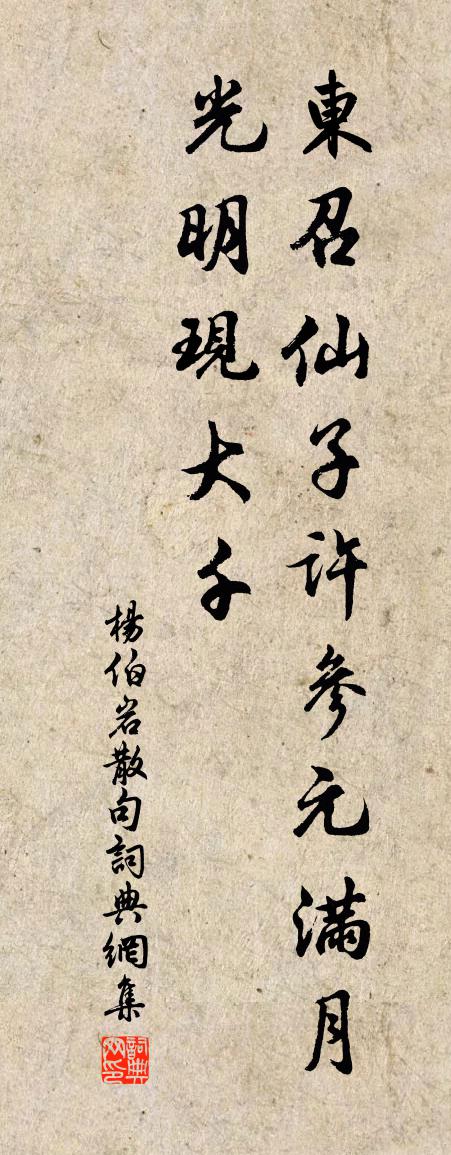 東召仙子許參元滿月
光明現大千
楊伯岩散句詞典網集
詞典网印